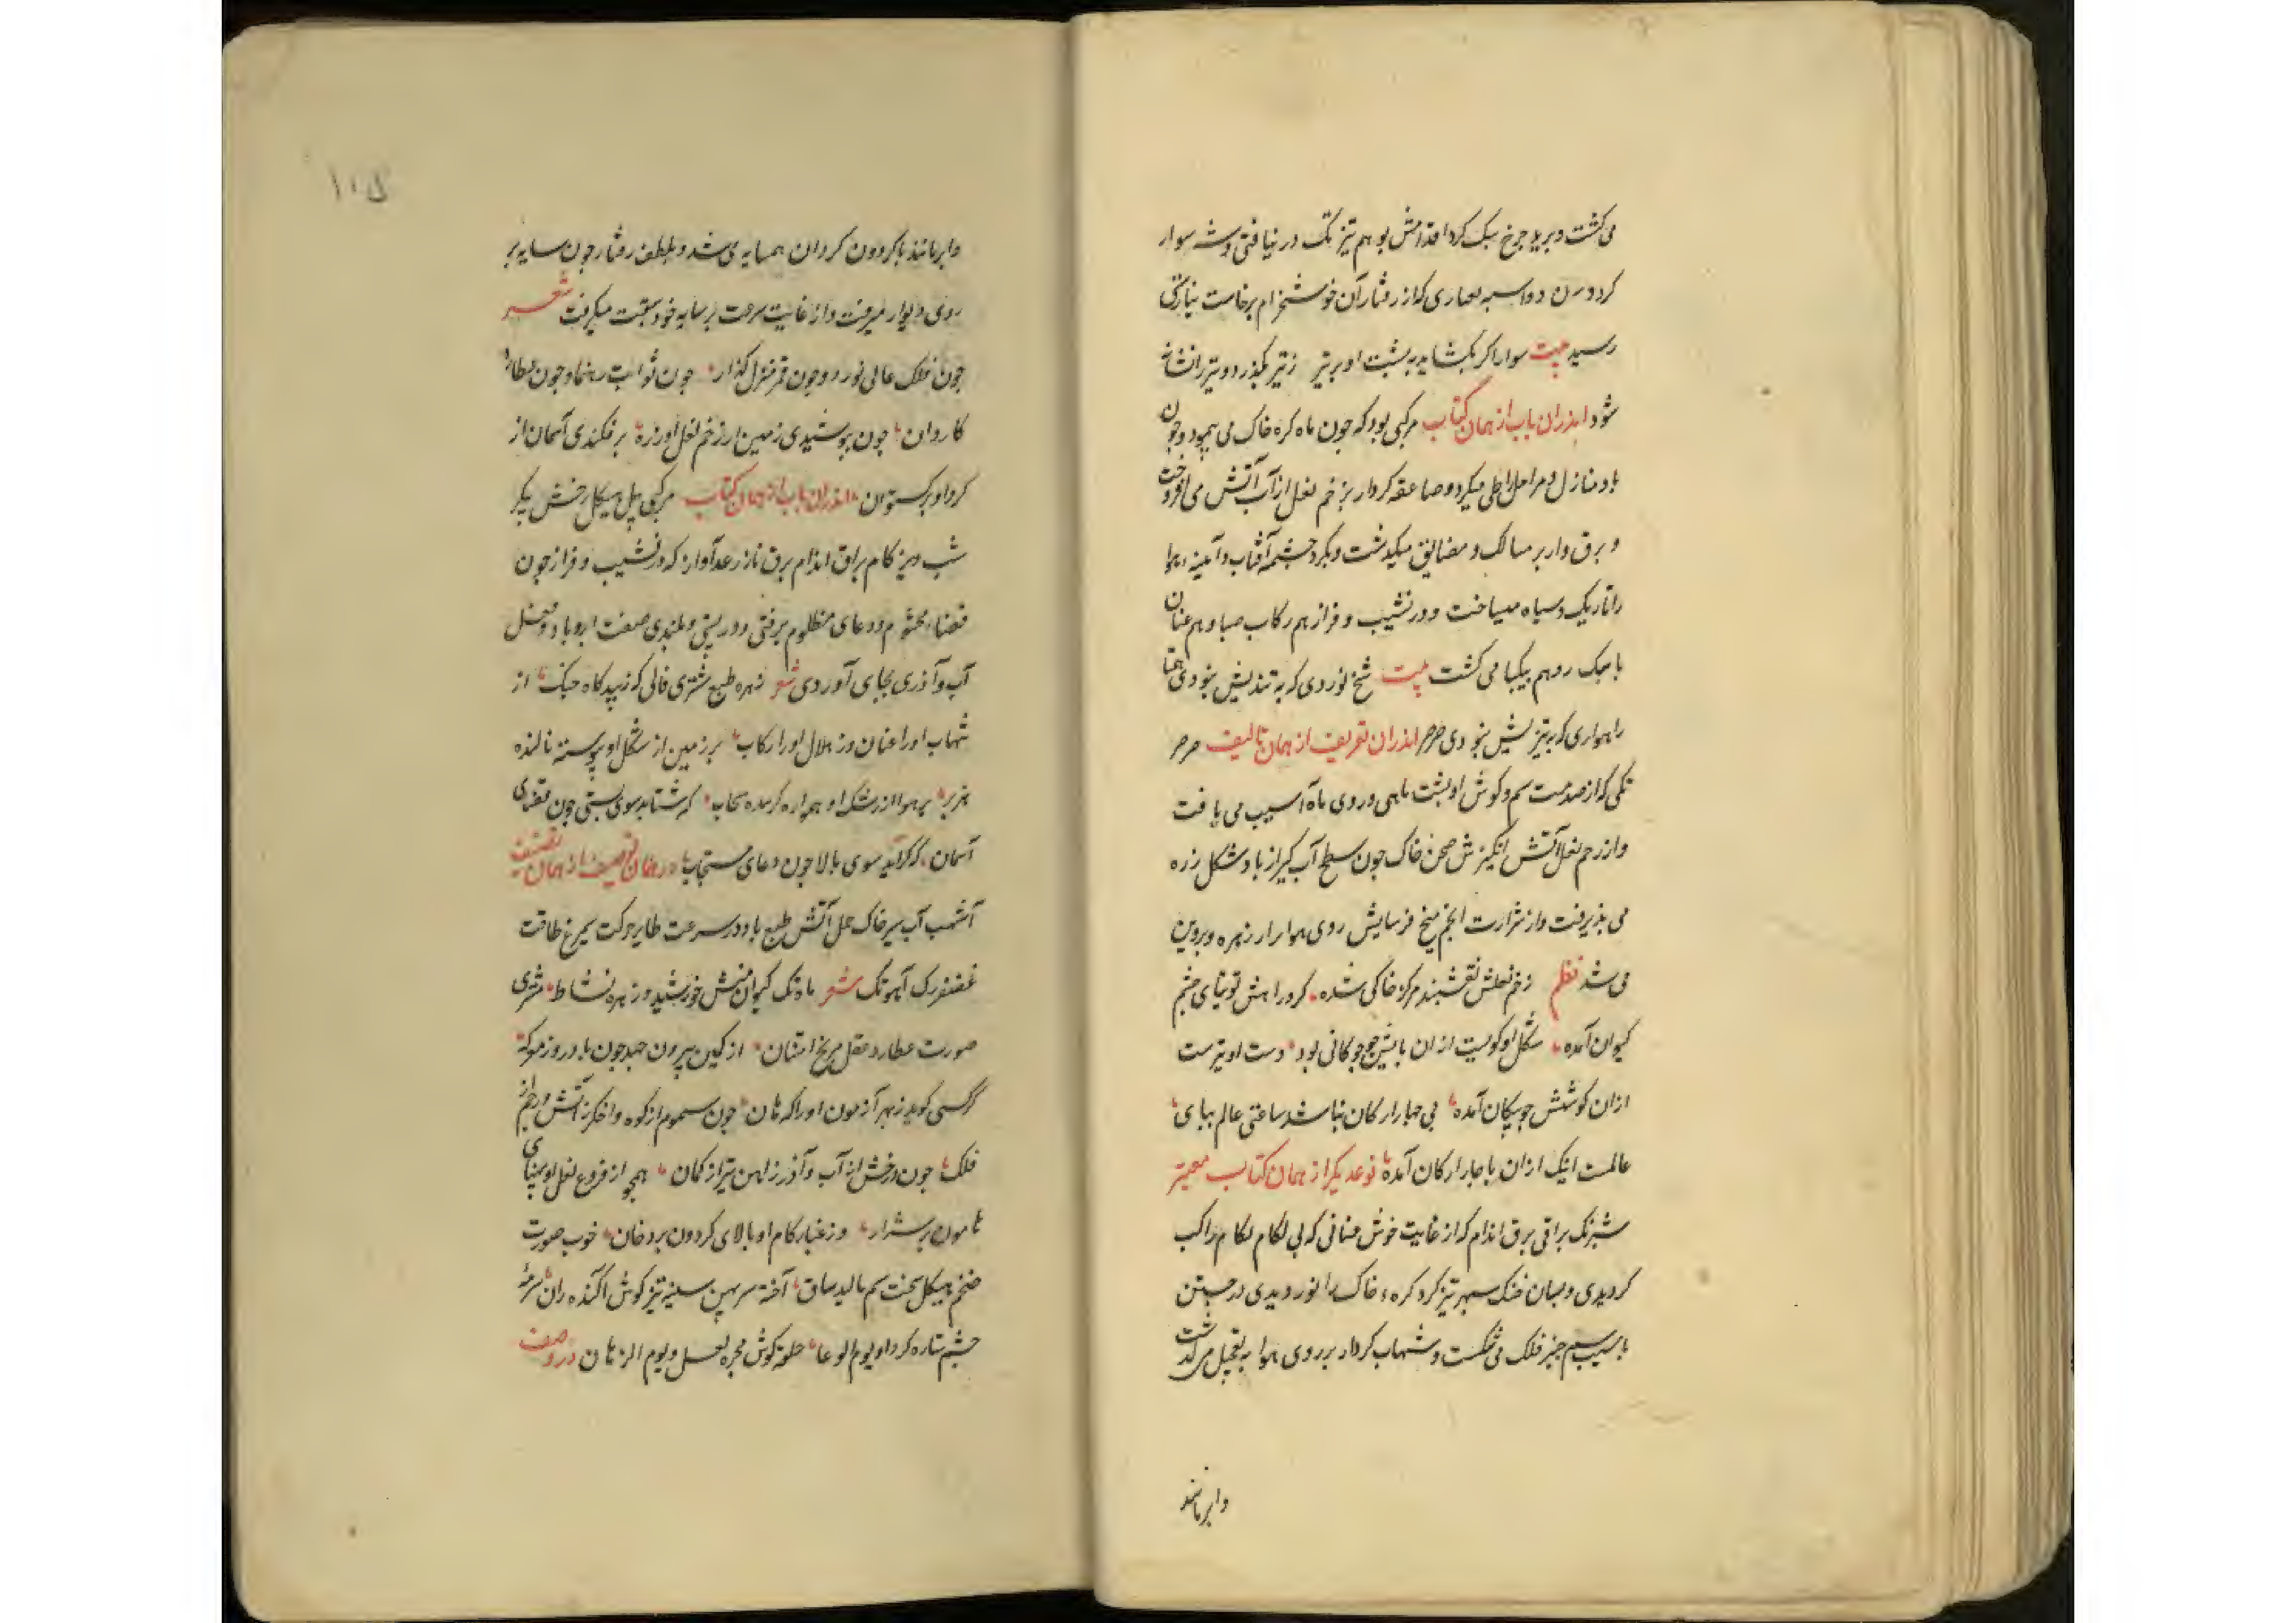 می‌گشت و برید چرخ سبک کرد اقدامش بوهم تیز تک درنیافتی و شه سوار
کردون دو اسبه بغباری که از رفتار آن خوشخرام برخاست نیارستی
رسید بیت سوار اکر بکشاید به پشت او بر تیر ز تیر بکذرد و تیر را نشانه
شود اندران باب از همان کتاب مرکبی بود که چون ماه کره خاک می پیمود و چون
باد منازل و مراحل را طی میکرد و صاعقه کردار بزخم نعل از آب آتش می افروخت
و برق وار بر مسالک و مضایق میکذشت و بکرد چشمه آفتاب و آینه هوا
را تاریک و سیاه میساخت و در نشیب و فراز هم رکاب صبا و هم عنان
با سبک رو هم بیکپا می کشت بیت شخ نوردی که به تندیش بنودی همتا
راهواری که به تیزیش بنودی صرصر اندران تعریف از همان تالیف صرصر
تکی که از صدمت سم و کوش او پشت ماهی و روی ماه آسیب می یافت
و از زخم نعل آتش انکیزش صحن خاک چون سطح آب کیر از باد شکل زره
می پذیرفت و از شرارت انجم میخ فرسایش روی هوا را از زهره و پروین
می شد نظم زخم نعلش نقشبند مرکز خاکی شده کرد راهش توتیای چشم
کیوان آمده شکل او کویست ازان با پنج چوکانی بود دست او تیرست
ازان کوشش چو پیکان آمده بی چهار ارکان نباشد ساعتی عالم بپای
عالمست اینک ازان با چار ارکان آمده نوعدیکر از همان کتاب میمیز
شبرنک براقی برق اندام که از غایت خوش عنانی که بی لکام لکام راکب
کردیدی و بسان خنک سپهر تیز کرد کرهٔ خاک را نوردیدی در جستن
باسیب سم چنبر فلک می شکست و شهاب کردار بر روی هوا به تعجیل میکذشت
وابر مانند
۱۰۵
وابر مانند با کردون کردان همسایه می شد و بلطف رفتار چون سایه بر
روی دیوار میرفت و از غایت سرعت بر سایه خود سبقت میکرفت شعر
چون فلک عالی نورد و چون قمر منزل کذار چون ثوابت رهنما و چون عطارد
کاروان چون بپوشیدی زمین از زخم نعل او زره برفکندی آسمان از
کرد او برکستوان اندران باب از همان کتاب مرکبی پیل هیکل رخش پیکر
شبدیز کام براق اندام برق تاز رعد آواز که در نشیب و فراز چون
قضاء محتوم و دعای مظلوم برفتی و در پستی و بلندی صفت ابر و باد و فعل
آب و آذری بجای آوردی شعر زهره طبع مشتری فالی که زیبد کاه جنک از
شهاب او را عنان وز هلال او را رکاب بر زمین از شکل او پیوسته نالنده
هزبر بر هوا از رشک او همواره کرینده سحاب که شتابد سوی پستی چون قضای
آسمان که کراید سوی بالا چون دعای مستجاب در همان توصیف از همان تصنیف
آشهب آب سیر خاک حمل آتش طبع باد در سرعت طایر حرکت سیمرغ طاقت
غضنفر رک آهو تک شعر ماه تک کیوان منش خورشید وز زهره نشاط مشتری
صورت عطارد عقل مریخ امتنان از کمین بیرون جهد چون باد روز معرکه
کر کسی کوید زبهر آزمون او را که هان چون سموم از کوه و اخکر ز آتش و رجم از
فلک چون درخش از آب و آذر ز اهن تیر از کمان همچو از فروغ نعل او پهنای
هامون پر شرار وز غبار کام او بالای کردون پر دخان خوب صورت
ضخم هیکل سخت سم مالیده ساق آخته سر پهن سینه تیز کوش اکنده ران سرمهٔ
چشم ستاره کرد او یوم الوغا حلقهٔ کوش مجره نعل او یوم الرهان در وصف